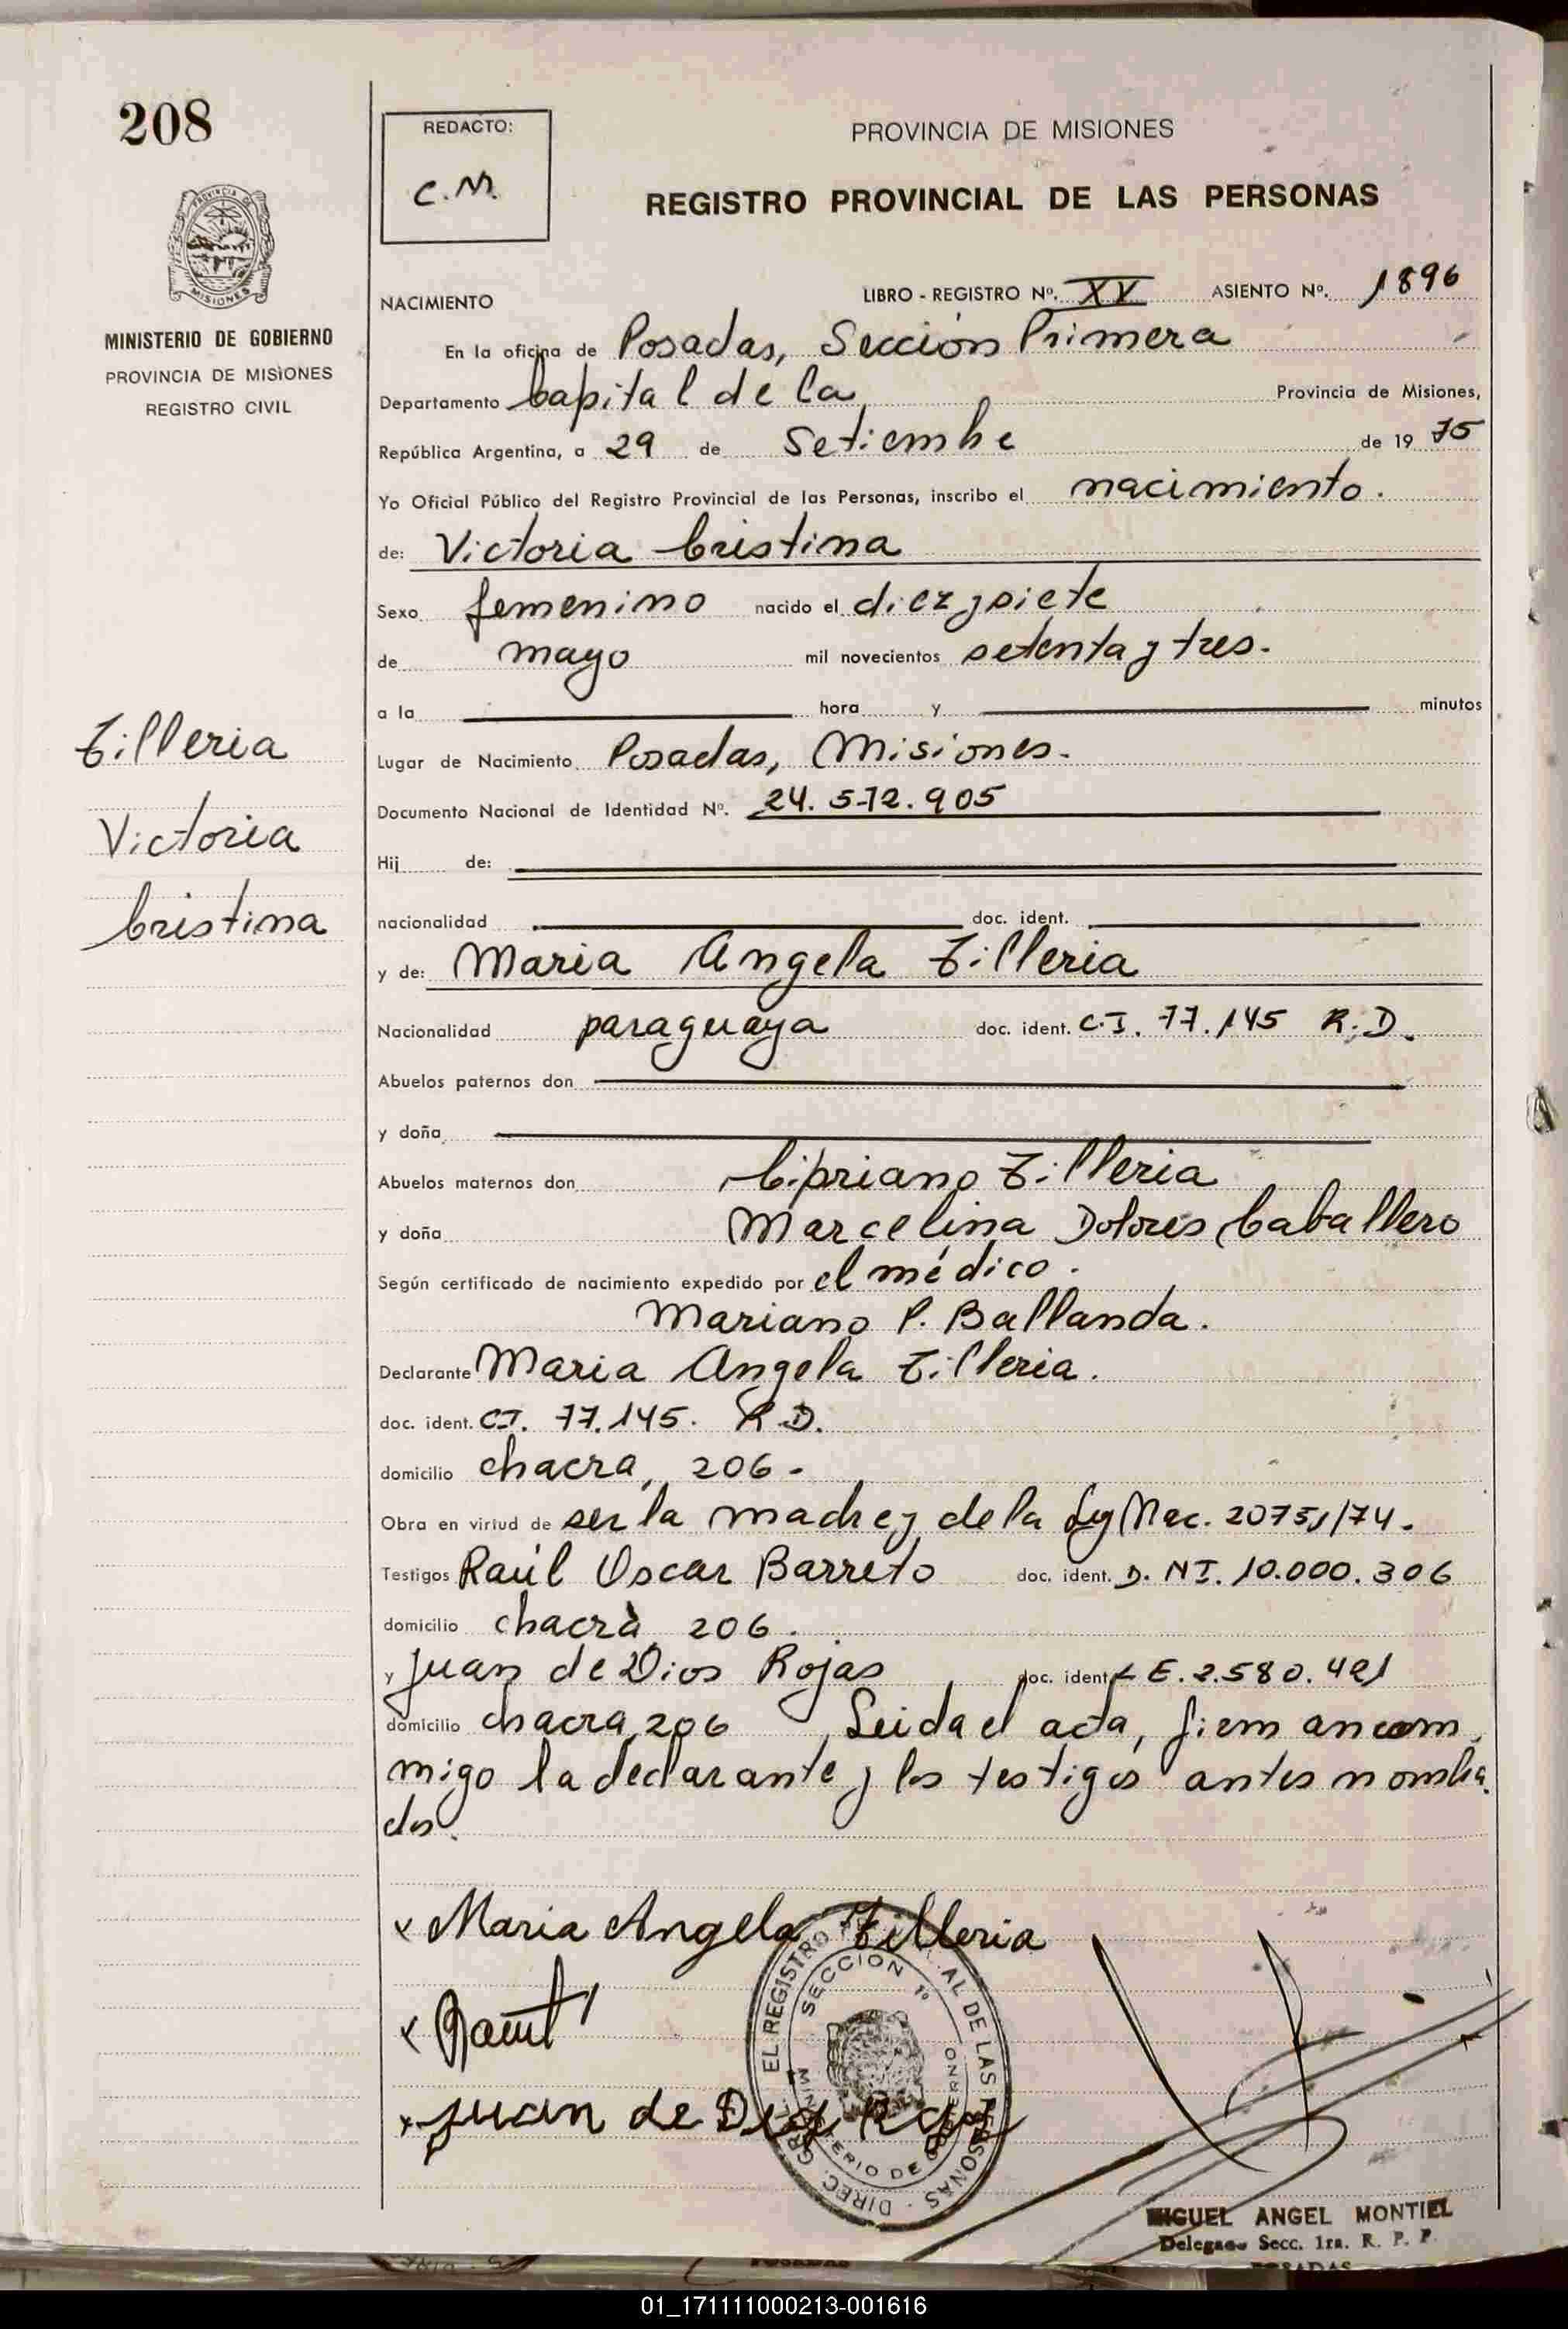 208
REDACTO:
C.M.
PROVINCIA DE MISIONES
REGISTRO PROVINCIAL DE LAS PERSONAS
MISIONES
MINISTERIO DE GOBIERNO
PROVINCIA DE MISIONES
REGISTRO CIVIL
NACIMIENTO LIBRO - REGISTRO Nº. XV ASIENTO Nº. 1896
En la oficina de Posadas, Sección Primera
Departamento Capital de la Provincia de Misiones,
República Argentina, a 29 de Setiembre de 19 75
Yo Oficial Público del Registro Provincial de las Personas, inscribo el nacimiento.
de: Victoria Cristina
Sexo femenino nacido el diez y siete
de mayo mil novecientos setenta y tres.
a la hora y minutos
Tilleria
Victoria
Cristina
Lugar de Nacimiento Posadas, Misiones.
Documento Nacional de Identidad Nº. 24.572.905
Hij de:
nacionalidad doc. ident.
y de: Maria Angela Tilleria
Nacionalidad paraguaya doc. ident. C.I. 77.145 R.D.
Abuelos paternos don
y doña
Abuelos maternos don Cipriano Tilleria
y doña Marcelina Dolores Caballero
Según certificado de nacimiento expedido por el médico.
Mariano P. Ballanda.
Declarante Maria Angela Tilleria.
doc. ident. C.I. 77.145. R.D.
domicilio chacra, 206.
Obra en virtud de ser la madre y de la Ley Nac. 20751/74.
Testigos Raúl Oscar Barreto doc. ident. D.NI. 10.000.306
domicilio chacra 206.
y Juan de Dios Rojas doc. ident. L E. 2.580.491
domicilio chacra, 206 Leida el acta, firman con
migo la declarante y los testigos antes nombra
dos.
x Maria Angela Tilleria
x Juan de Dios Rojas
DIREC. GRAL. EL REGISTRO AL DE LAS PERSONAS
SECCION 1º
MINISTERIO DE GOBIERNO
MIGUEL ANGEL MONTIEL
Delegado Secc. 1ra. R. P. P.
POSADAS
01_171111000213-001616